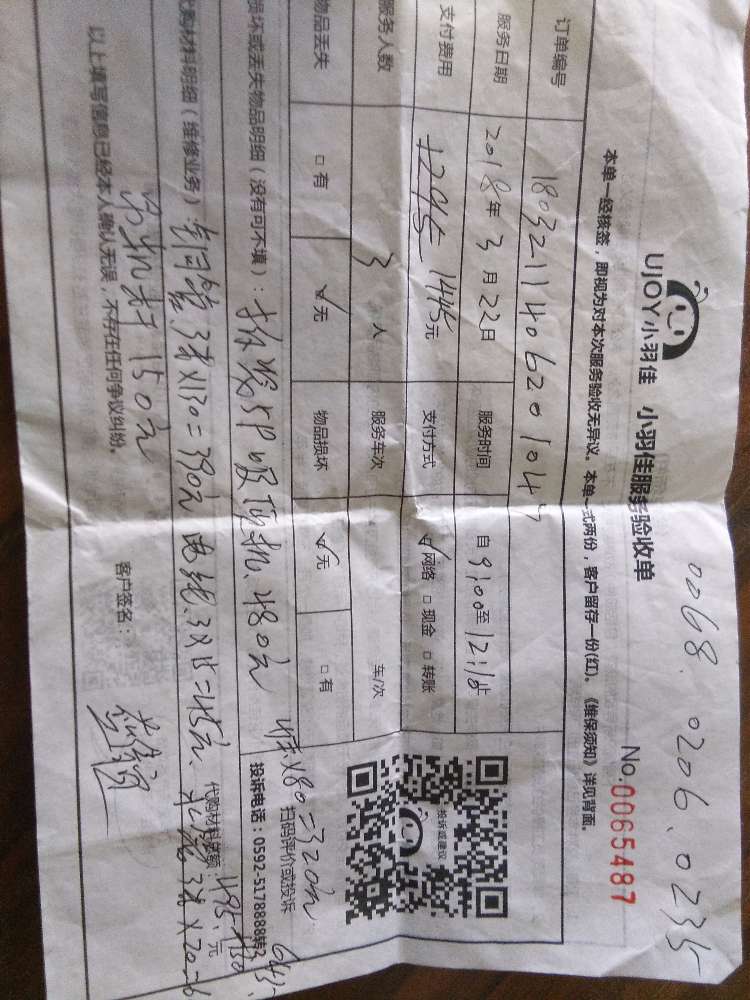 0068 0206.0235
UJOY小羽佳 小羽佳服务验收单
No.0065487
本单一经核签，即视为对本次服务验收无异议。本单一式两份，客户留存一份(红)。《维保须知》详见背面。
订单编号 180321140620104
服务日期 2018年3月22日 服务时间 自9:00至12:15
支付费用 1295 1445元 支付方式 ☑网络 □现金 □转账
服务人数 3人 服务车次 车/次
物品丢失 □有 ☑无 物品损坏 ☑无 □有
投诉或建议
扫码评价或投诉
投诉电话：0592-5178888转2
损坏或丢失物品明细（没有可不填）：拆装5P吸顶机.480元 4米×80=320元
代购材料明细（维修业务）：铜管3米×130=390元 电线.3×15=45元.
代购材料总额：495元
另机打150元
以上填写信息已经本人确认无误，不存在任何争议纠纷。
客户签名：